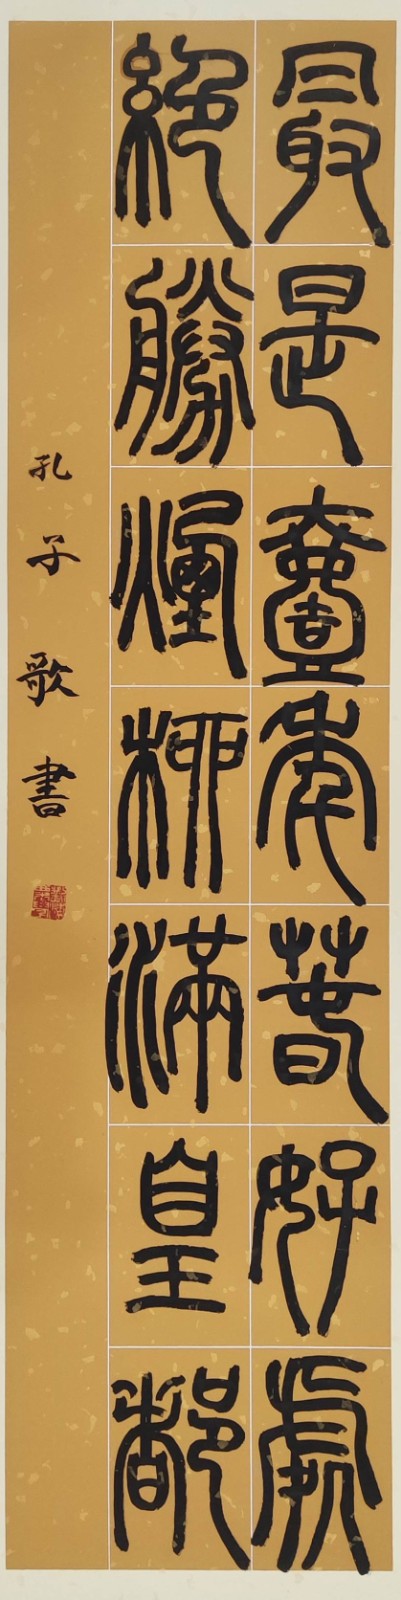 最是壹年萅好處
絕勝煙柳滿皇都
孔子歌書